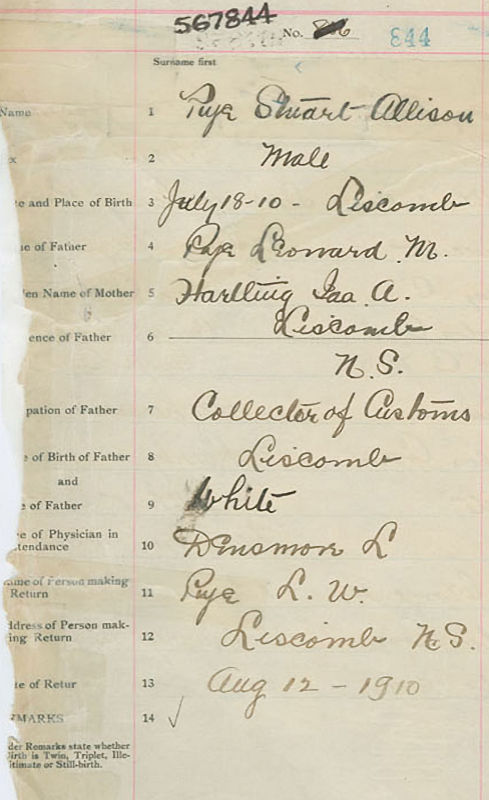 567844
No. 844
Surname first
Name 1 Pye Stuart Allison
x 2 Male
te and Place of Birth 3 July 18-10 - Liscomb
ne of Father 4 Pye Leonard M.
en Name of Mother 5 Hartling Ida A.
Liscomb
ence of Father 6
N.S.
pation of Father 7 Collector of Customs
e of Birth of Father 8 Liscomb
and
e of Father 9 White
e of Physician in
tendance 10 Densmore L
ame of Person making
Return 11 Pye L. W.
ddress of Person mak-
ing Return 12 Liscomb N.S.
te of Retur 13 Aug 12 - 1910
EMARKS 14 ✓
der Remarks state whether
Birth is Twin, Triplet, Ille-
itimate or Still-birth.